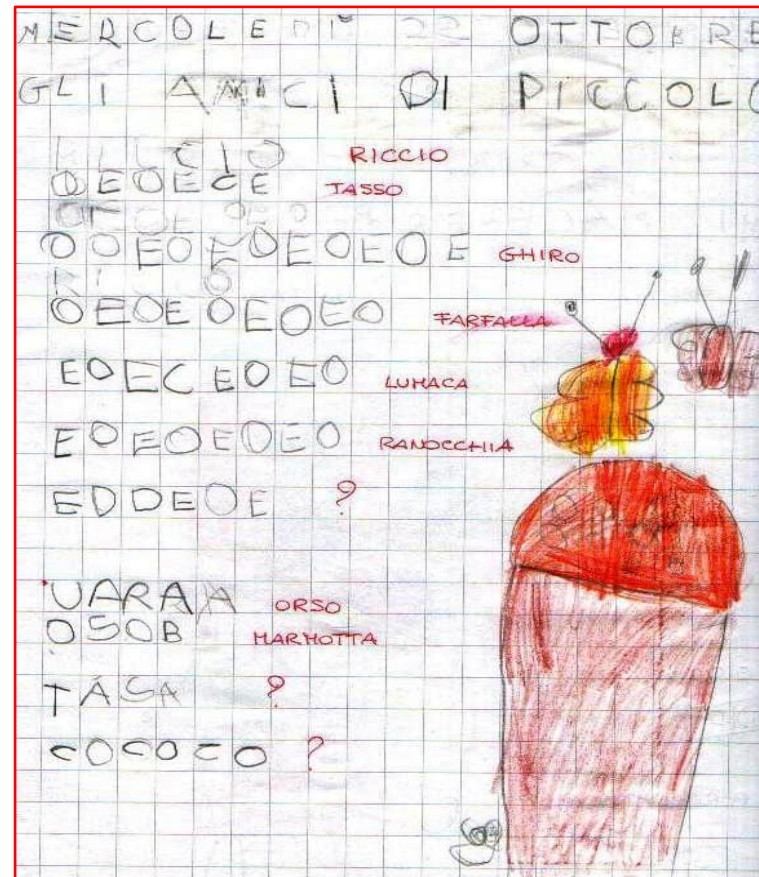 MERCOLEDI' 22 OTTOBRE
GLI AMICI DI PICCOLO
RICCIO
OEOECE TASSO
OOEOEOEOEOE GHIRO
OEOEOEOEO FARFALLA
EOECEOEO LUMACA
EOEOEOEO RANOCCHIA
EDDEOE ?
UARAA ORSO
OSOB MARMOTTA
TASA ?
COCOCO ?